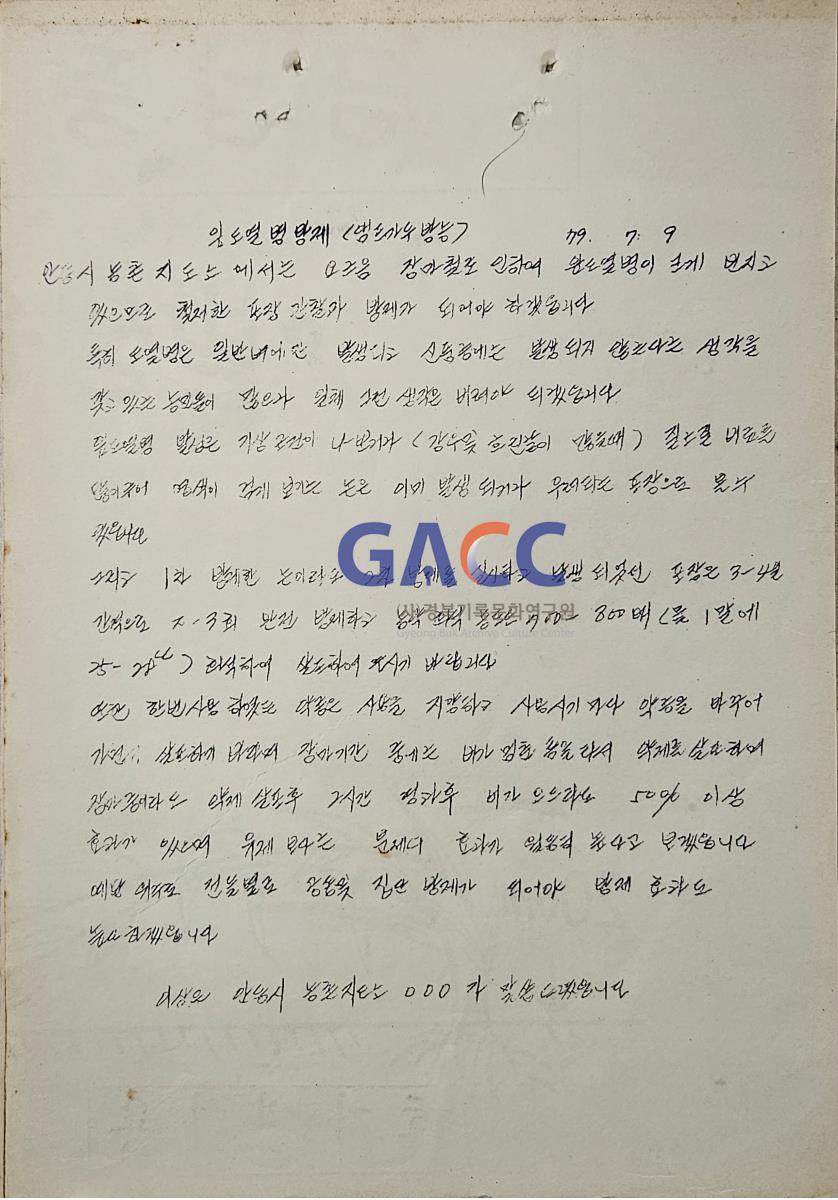 잎도열병방제 (앰프가두방송) 79. 7. 9
안동시 농촌 지도소 에서는 요즈음 장마철로 인하여 잎도열병이 크게 번지고
있으므로 철저한 포장 관찰과 방제가 되어야 하겠읍니다
특히 도열병은 일반벼에만 발생되고 신품종에는 발생 되지 않는다는 생각을
갖고 있는 농민들이 많으나 일체 그런 생각은 버려야 되겠읍니다
잎도열병 발생은 기상조건이 나쁘거나 (강우및 흐린날이 많을때) 질소질 비료를
많이주어 색이 검게 보이는 논은 이미 발생 되거나 우려되는 포장으로 볼수
있읍니다
그리고 1차 방제한 논이라도 2차 방제를 실시하고 발생 되었던 포장은 3-4일
간격으로 2-3회 완전 방제하고 농약 희석 800배 (물 1말에
25-28) 희석하여 살포하여 주시기 바랍니다
또한 한번사용 하였던 약종은 사용을 지양하고 사용시기 마다 약종을 바꾸어
가면서 살포하기 바라며 장마기간 중에는 비가 멈춘 틈을타서 약제를 살포하며
장마중이라도 약제 살포후 2시간 경과후 비가 오드라도 50% 이상
효과가 있으며 유제 보다는 분제가 효과가 높다고 보겠읍니다
예방 위주로 전들별로 공동및 집단 방제가 되어야 방제 효과도
높다 하겠읍니다
이상은 안동시 농촌지도소 000 가 말씀드렸읍니다
GACC
(사)경북기록문화연구원
Gyeong Buk Archive Culture Center